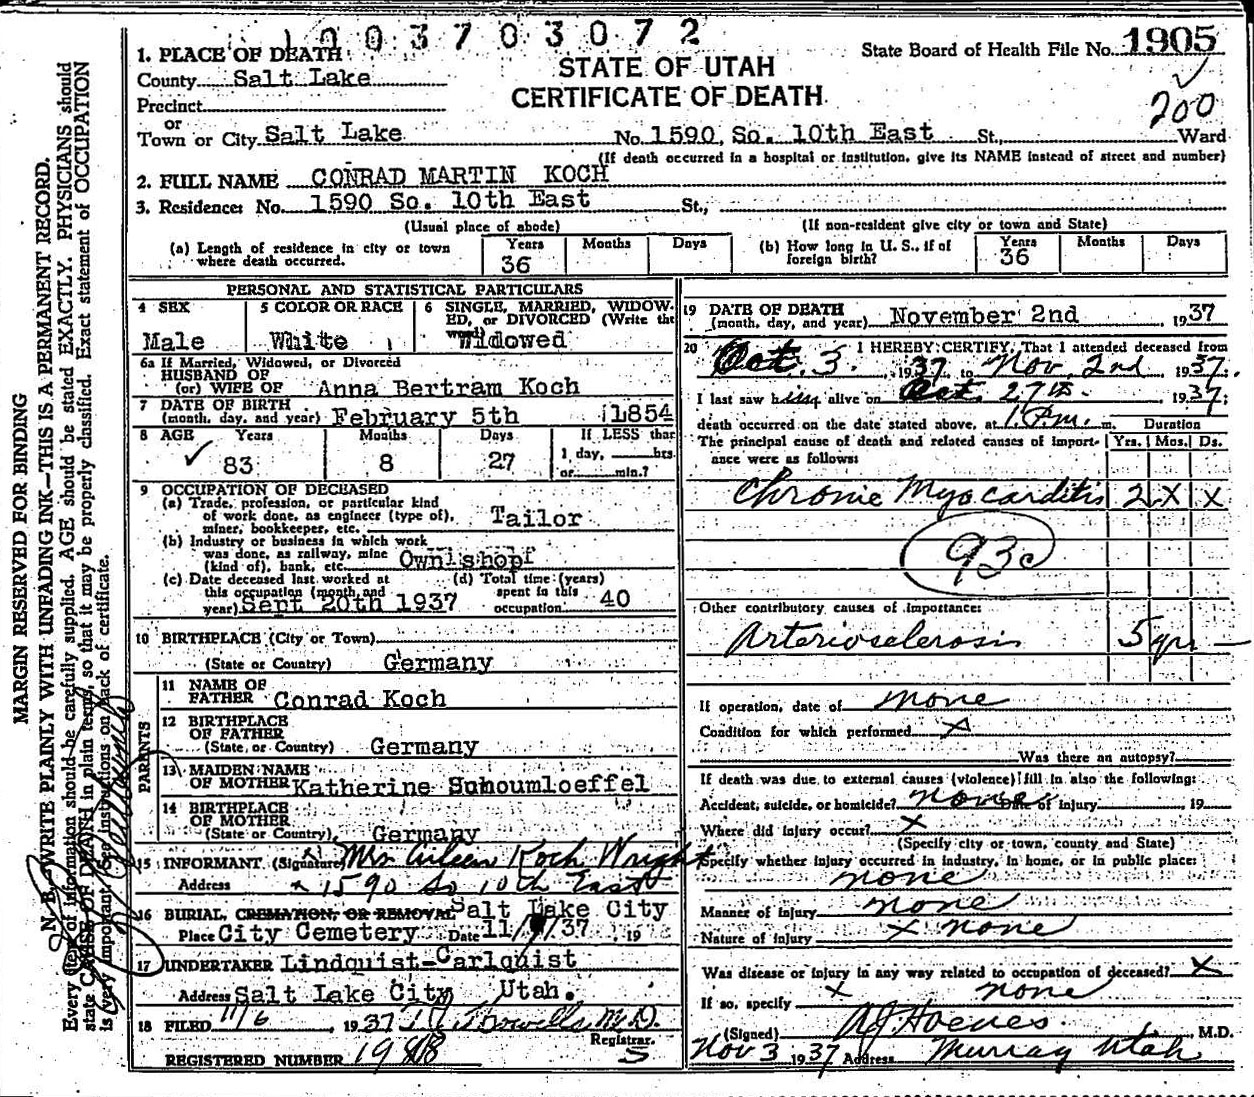 1003703072
1. PLACE OF DEATH
State Board of Health File No. 1905
County Salt Lake
STATE OF UTAH
Precinct
CERTIFICATE OF DEATH
200
or
Town or City Salt Lake No. 1590 So. 10th East St., Ward
(If death occurred in a hospital or institution, give its NAME instead of street and number)
2. FULL NAME CONRAD MARTIN KOCH
3. Residence: No. 1590 So. 10th East St.,
(Usual place of abode) (If non-resident give city or town and State)
(a) Length of residence in city or town where death occurred. Years 36 Months Days
(b) How long in U. S., if of foreign birth? Years 36 Months Days
PERSONAL AND STATISTICAL PARTICULARS
4 SEX Male
5 COLOR OR RACE White
6 SINGLE, MARRIED, WIDOW-
ED, or DIVORCED (Write the
Widowed
6a If Married, Widowed, or Divorced
HUSBAND OF
(or) WIFE OF Anna Bertram Koch
7 DATE OF BIRTH
(month, day, and year) February 5th 1854
8 AGE Years Months Days If LESS than
✓ 83 8 27 1 day, hrs.
or min.?
9 OCCUPATION OF DECEASED
(a) Trade, profession, or particular kind
of work done, as engineer (type of),
miner, bookkeeper, etc. Tailor
(b) Industry or business in which work
was done, as railway, mine
(kind of), bank, etc. Own shop
(c) Date deceased last worked at
this occupation (month and
year) Sept 20th 1937
(d) Total time (years)
spent in this
occupation 40
10 BIRTHPLACE (City or Town)
(State or Country) Germany
PARENTS
11 NAME OF
FATHER Conrad Koch
12 BIRTHPLACE
OF FATHER
(State, or Country) Germany
13 MAIDEN NAME
OF MOTHER Katherine Schoumloeffel
14 BIRTHPLACE
OF MOTHER
(State or Country) Germany
15 INFORMANT (Signature) Mrs Koch Wright
Address 1590 So 10th East
16 BURIAL, CREMATION, OR REMOVAL Salt Lake City
Place City Cemetery Date 11/ /37 19
17 UNDERTAKER Lindquist-Carlquist
Address Salt Lake City Utah.
18 FILED 11/6, 1937 M.D.
Registrar.
REGISTERED NUMBER
19 DATE OF DEATH
(month, day, and year) November 2nd, 1937
20 I HEREBY CERTIFY, That I attended deceased from
Oct. 3, 1937, to Nov 2nd, 1937.
I last saw him alive on Oct 27th 1937;
death occurred on the date stated above, at 1 P.m. m. Duration
The principal cause of death and related causes of import- Yrs. Mos. Ds.
ance were as follows:
Chronic Myocarditis 2 X X
93c
Other contributory causes of importance:
Arteriosclerosis 5 yrs —
If operation, date of none
Condition for which performed X
Was there an autopsy?
If death was due to external causes (violence) fill in also the following:
Accident, suicide, or homicide? none Date of injury 19
Where did injury occur? X
(Specify city or town, county and State)
Specify whether injury occurred in industry, in home, or in public place:
none
Manner of injury none
Nature of injury X none
Was disease or injury in any way related to occupation of deceased? X
If so, specify X none
(Signed) M.D.
Nov 3 1937 Address Murray Utah
MARGIN RESERVED FOR BINDING
N. B. WRITE PLAINLY WITH UNFADING INK—THIS IS A PERMANENT RECORD.
Every item of information should be carefully supplied. AGE should be stated EXACTLY. PHYSICIANS should
state CAUSE OF DEATH in plain terms, so that it may be properly classified. Exact statement of OCCUPATION
is very important. See instructions on back of certificate.